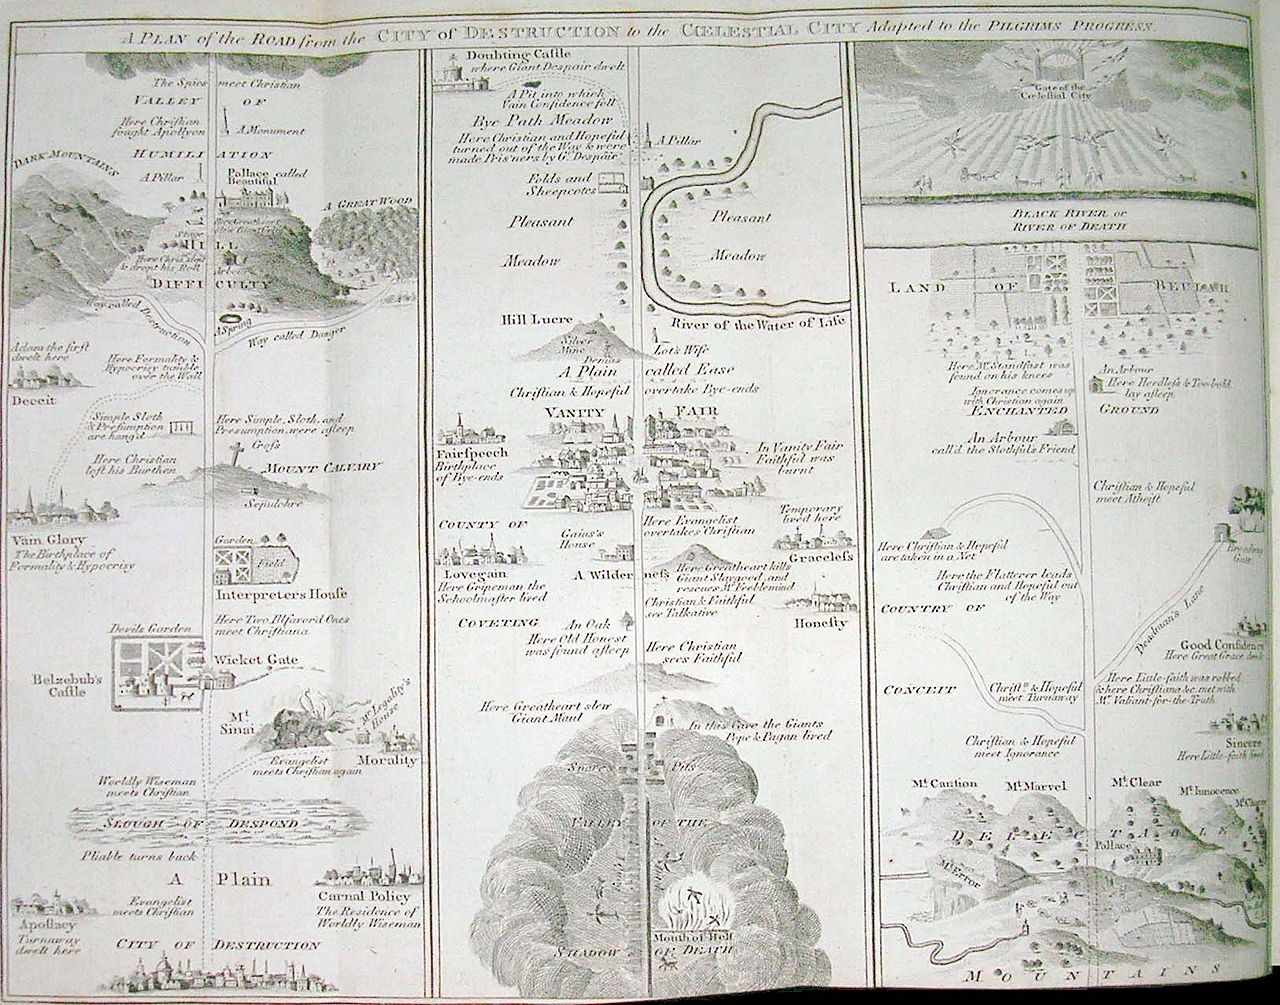 A PLAN of the ROAD from the CITY of DESTRUCTION to the CŒLESTIAL CITY Adapted to the PILGRIMS PROGRESS.
The Spies meet Christian
VALLEY OF
Here Christian
fought Apollyon
A Monument
HUMILIATION
DARK MOUNTAINS
A Pillar
Pallace called
Beautiful
A GREAT WOOD
HILL
Here Chris slept
& dropt his Roll
Arbour
DIFFICULTY
Way called Destruction
A Spring
Way called Danger
Adam the first
dwelt here
Deceit
Here Formality &
Hypocrisy tumble
over the Wall
Simple Sloth
& Presumption
are hang'd
Here Simple, Sloth, and
Presumption, were asleep
Cross
Here Christian
lost his Burthen
MOUNT CALVARY
Sepulchre
Vain Glory
The Birthplace of
Formality & Hypocrisy
Garden
Field
Interpreters House
Here Two Ilfavord Ones
meet Christiana
Devils Garden
Wicket Gate
Belzebub's
Castle
Mt.
Sinai
Mr. Legality's
House
Morality
Evangelist
meets Christian again
Worldly Wiseman
meets Christian
SLOUGH OF DESPOND
Pliable turns back
A Plain
Evangelist
meets Christian
Carnal Policy
The Residence of
Worldly Wiseman
Apostacy
Turnaway
dwelt here
CITY OF DESTRUCTION
Doubting Castle
where Giant Despair dwelt
A Pit into which
Vain Confidence fell
Bye Path Meadow
Here Christian and Hopeful
turned out of the Way & were
made Pris'ners by G. Despair
A Pillar
Folds and
Sheepcotes
Pleasant
Meadow
Pleasant
Meadow
Hill Lucre
River of the Water of Life
Silver
Mine
Demas
Lot's Wife
A Plain called Ease
Christian & Hopeful overtake Bye-ends
VANITY FAIR
Fairspeech
Birthplace
of Bye-ends
In Vanity Fair
Faithful was
burnt
COUNTY OF
Here Evangelist
overtakes Christian
Temporary
lived here
Gaius's
House
Graceless
Lovegain
Here Gripeman the
Schoolmaster lived
A Wilderness
Here Greatheart kills
Giant Slaygood, and
rescues Mr. Feeblemind
Christian & Faithful
see Talkative
Honesty
COVETING
An Oak
Here Old Honest
was found asleep
Here Christian
sees Faithful
Here Greatheart slew
Giant Maul
In this Cave the Giants
Pope & Pagan lived
Snares Pits
VALLEY OF THE
Mouth of Hell
SHADOW OF DEATH
Gate of the
Cœlestial City
BLACK RIVER or
RIVER OF DEATH
LAND OF BEULAH
Here Mr. Standfast was
found on his knees
An Arbour
Here Heedless & Too-bold
lay asleep
Ignorance comes up
with Christian again
ENCHANTED GROUND
An Arbour
call'd the Slothful's Friend
Christian & Hopeful
meet Atheist
Here Christian & Hopeful
are taken in a Net
Here the Flatterer leads
Christian and Hopeful out
of the Way
COUNTRY OF
Deadman's Lane
Good Confidence
Here Great Grace dwelt
CONCEIT
Christn. & Hopeful
meet Turnaway
Here Little-faith was robbed
& here Christiana &c. met with
Mr. Valiant-for-the-Truth
Christian & Hopeful
meet Ignorance
Sincere
Here Little-faith lived
Mt. Caution
Mt. Marvel
Mt. Clear
Mt. Innocence
DELECTABLE
Pallace
Mt. Error
MOUNTAINS